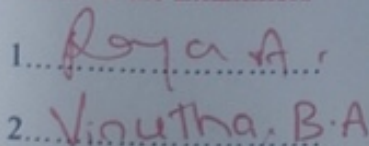 1....Roya A.
2....Vinutha. B.A